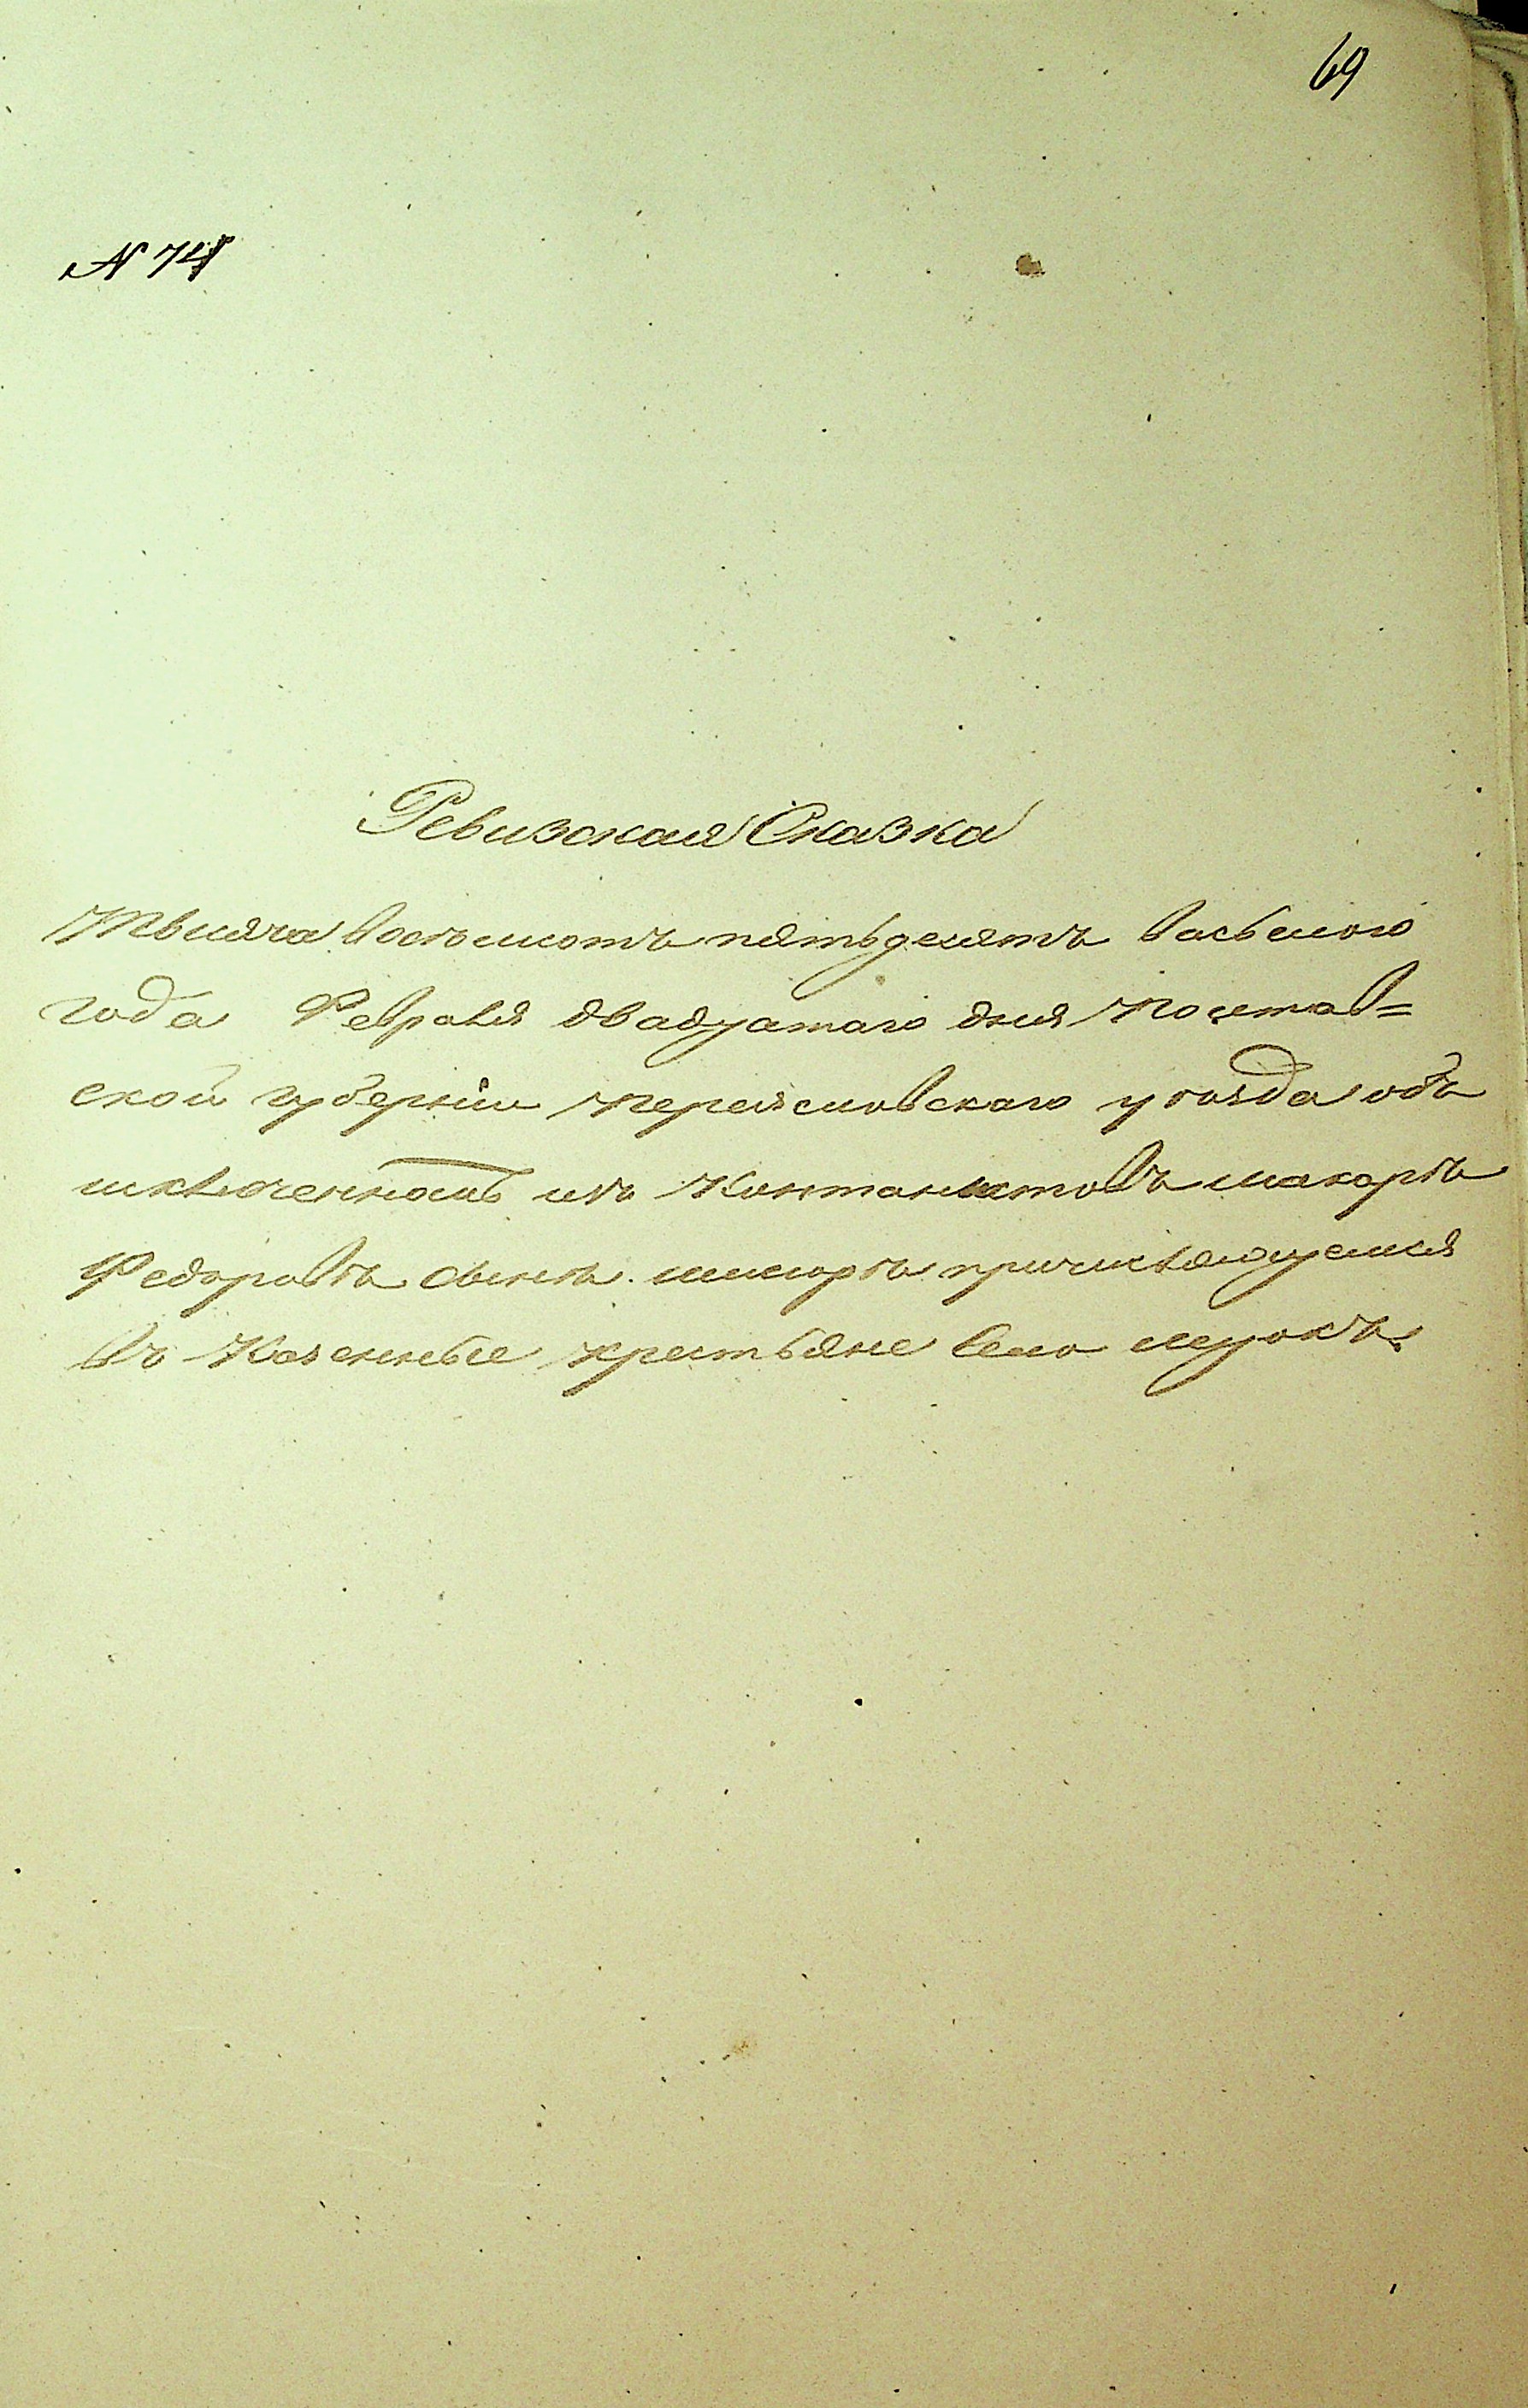 69
N 74
Ревизская Сказка
Тысяча восемсотъ пятьдесятъ васьмого
года Февраля двадцатаго дня Полтав=
ской губерніи Переясловскаго уѣзда объ
исключенномъ изъ Кантонистовъ Макаръ
Федоровъ сынъ причисляющемся
въ Казенные крестьяне село